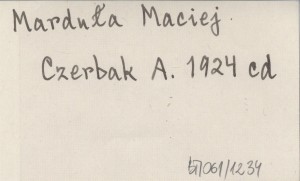 Marduła Maciej.
Czerbak A. 1924 cd
061/1234